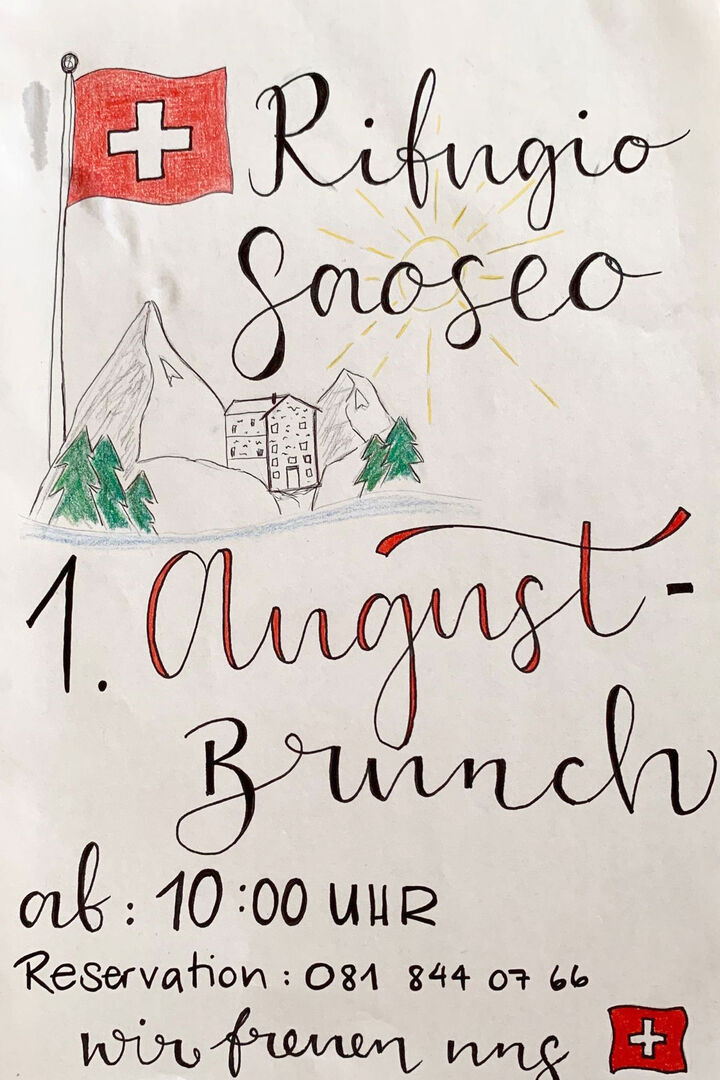 Rifugio
Saoseo
1. August-
Brunch
ab: 10:00 UHR
Reservation: 081 844 07 66
wir freuen uns